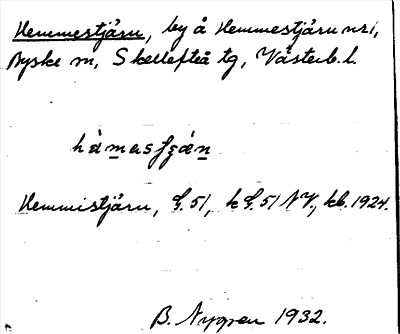 Hemmestjärn, by å Hemmestjärn nr 1,
Byske sn, Skellefteå tg, Västerb. l.
hàmastjæ̣n
Hemmistjärn, G. 51, k G. 51 NV., kb. 1924.
B. Nygren 1932.